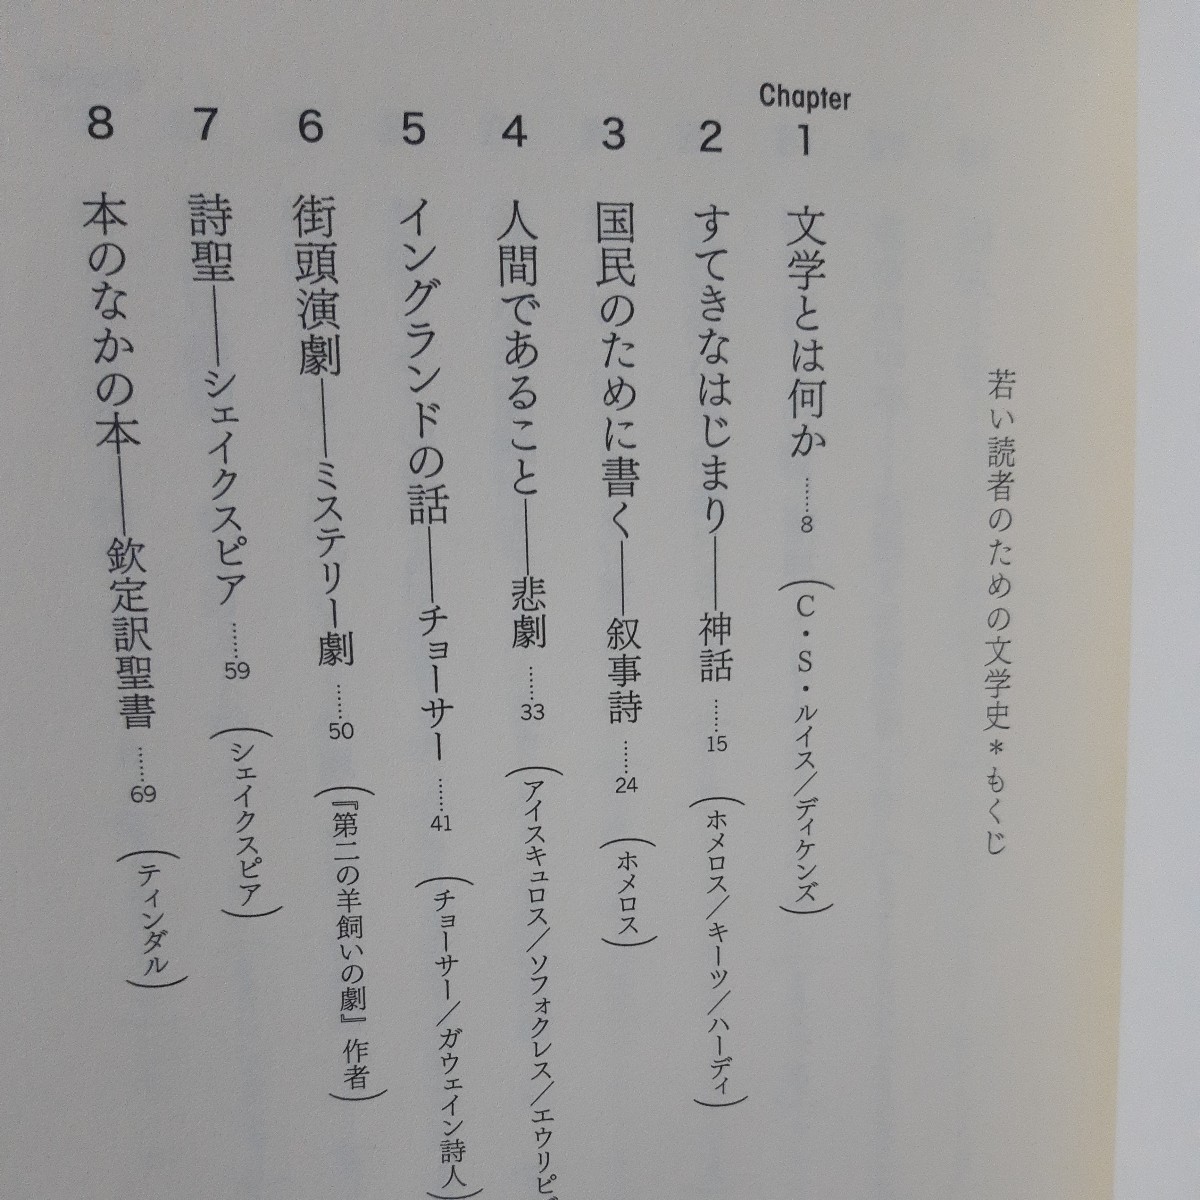 若い読者のための文学史＊もくじ
Chapter
1 文学とは何か ……8 （C・S・ルイス／ディケンズ）
2 すてきなはじまり――神話 ……15 （ホメロス／キーツ／ハーディ）
3 国民のために書く――叙事詩 ……24 （ホメロス）
4 人間であること――悲劇 ……33 （アイスキュロス／ソフォクレス／エウリピ
5 イングランドの話――チョーサー ……41 （チョーサー／ガウェイン詩人）
6 街頭演劇――ミステリー劇 ……50 （『第二の羊飼いの劇』作者）
7 詩聖――シェイクスピア ……59 （シェイクスピア）
8 本のなかの本――欽定訳聖書 ……69 （ティンダル）